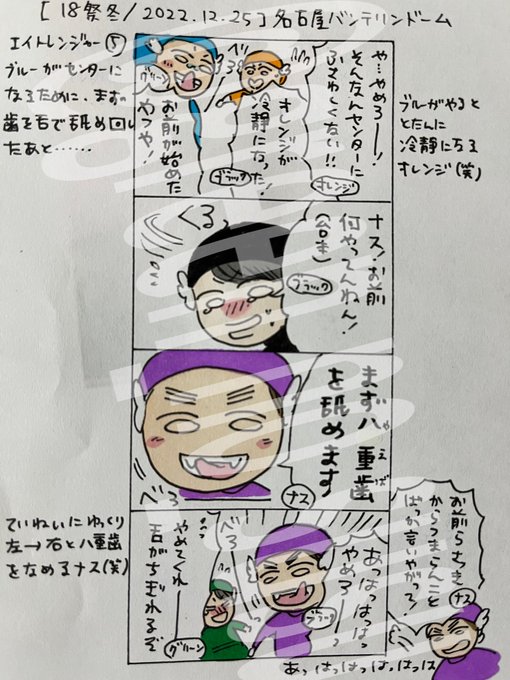 [18祭冬/2022.12.25]名古屋バンテリンドーム
エイトレンジャー⑤
ブルーがセンターに
なるために、まずの
歯を舌で舐め回し
たあと……
や…やめろー！
そんなんセンターに
ふさわしくない!!
オレンジ
オレンジが
冷静になった！
ブラック
べろ
グリーン
お前が始めた
やつや！
ブルーがやると
とたんに
冷静になる
オレンジ(笑)
ナス！お前
何やってんねん！
ブラック
くる
まず八重歯
を舐めます
やえば
ナス
べろ
ていねいにゆっくり
左→右と八重歯
をなめるナス(笑)
あっはっはっはっ
やめろーっ
ブラック
べろ
やめてくれー
舌がちぎれるぞ
グリーン
お前らさっき
からつまらんこと
ばっか言いやがって！
ナス
あっはっはっはっはっは